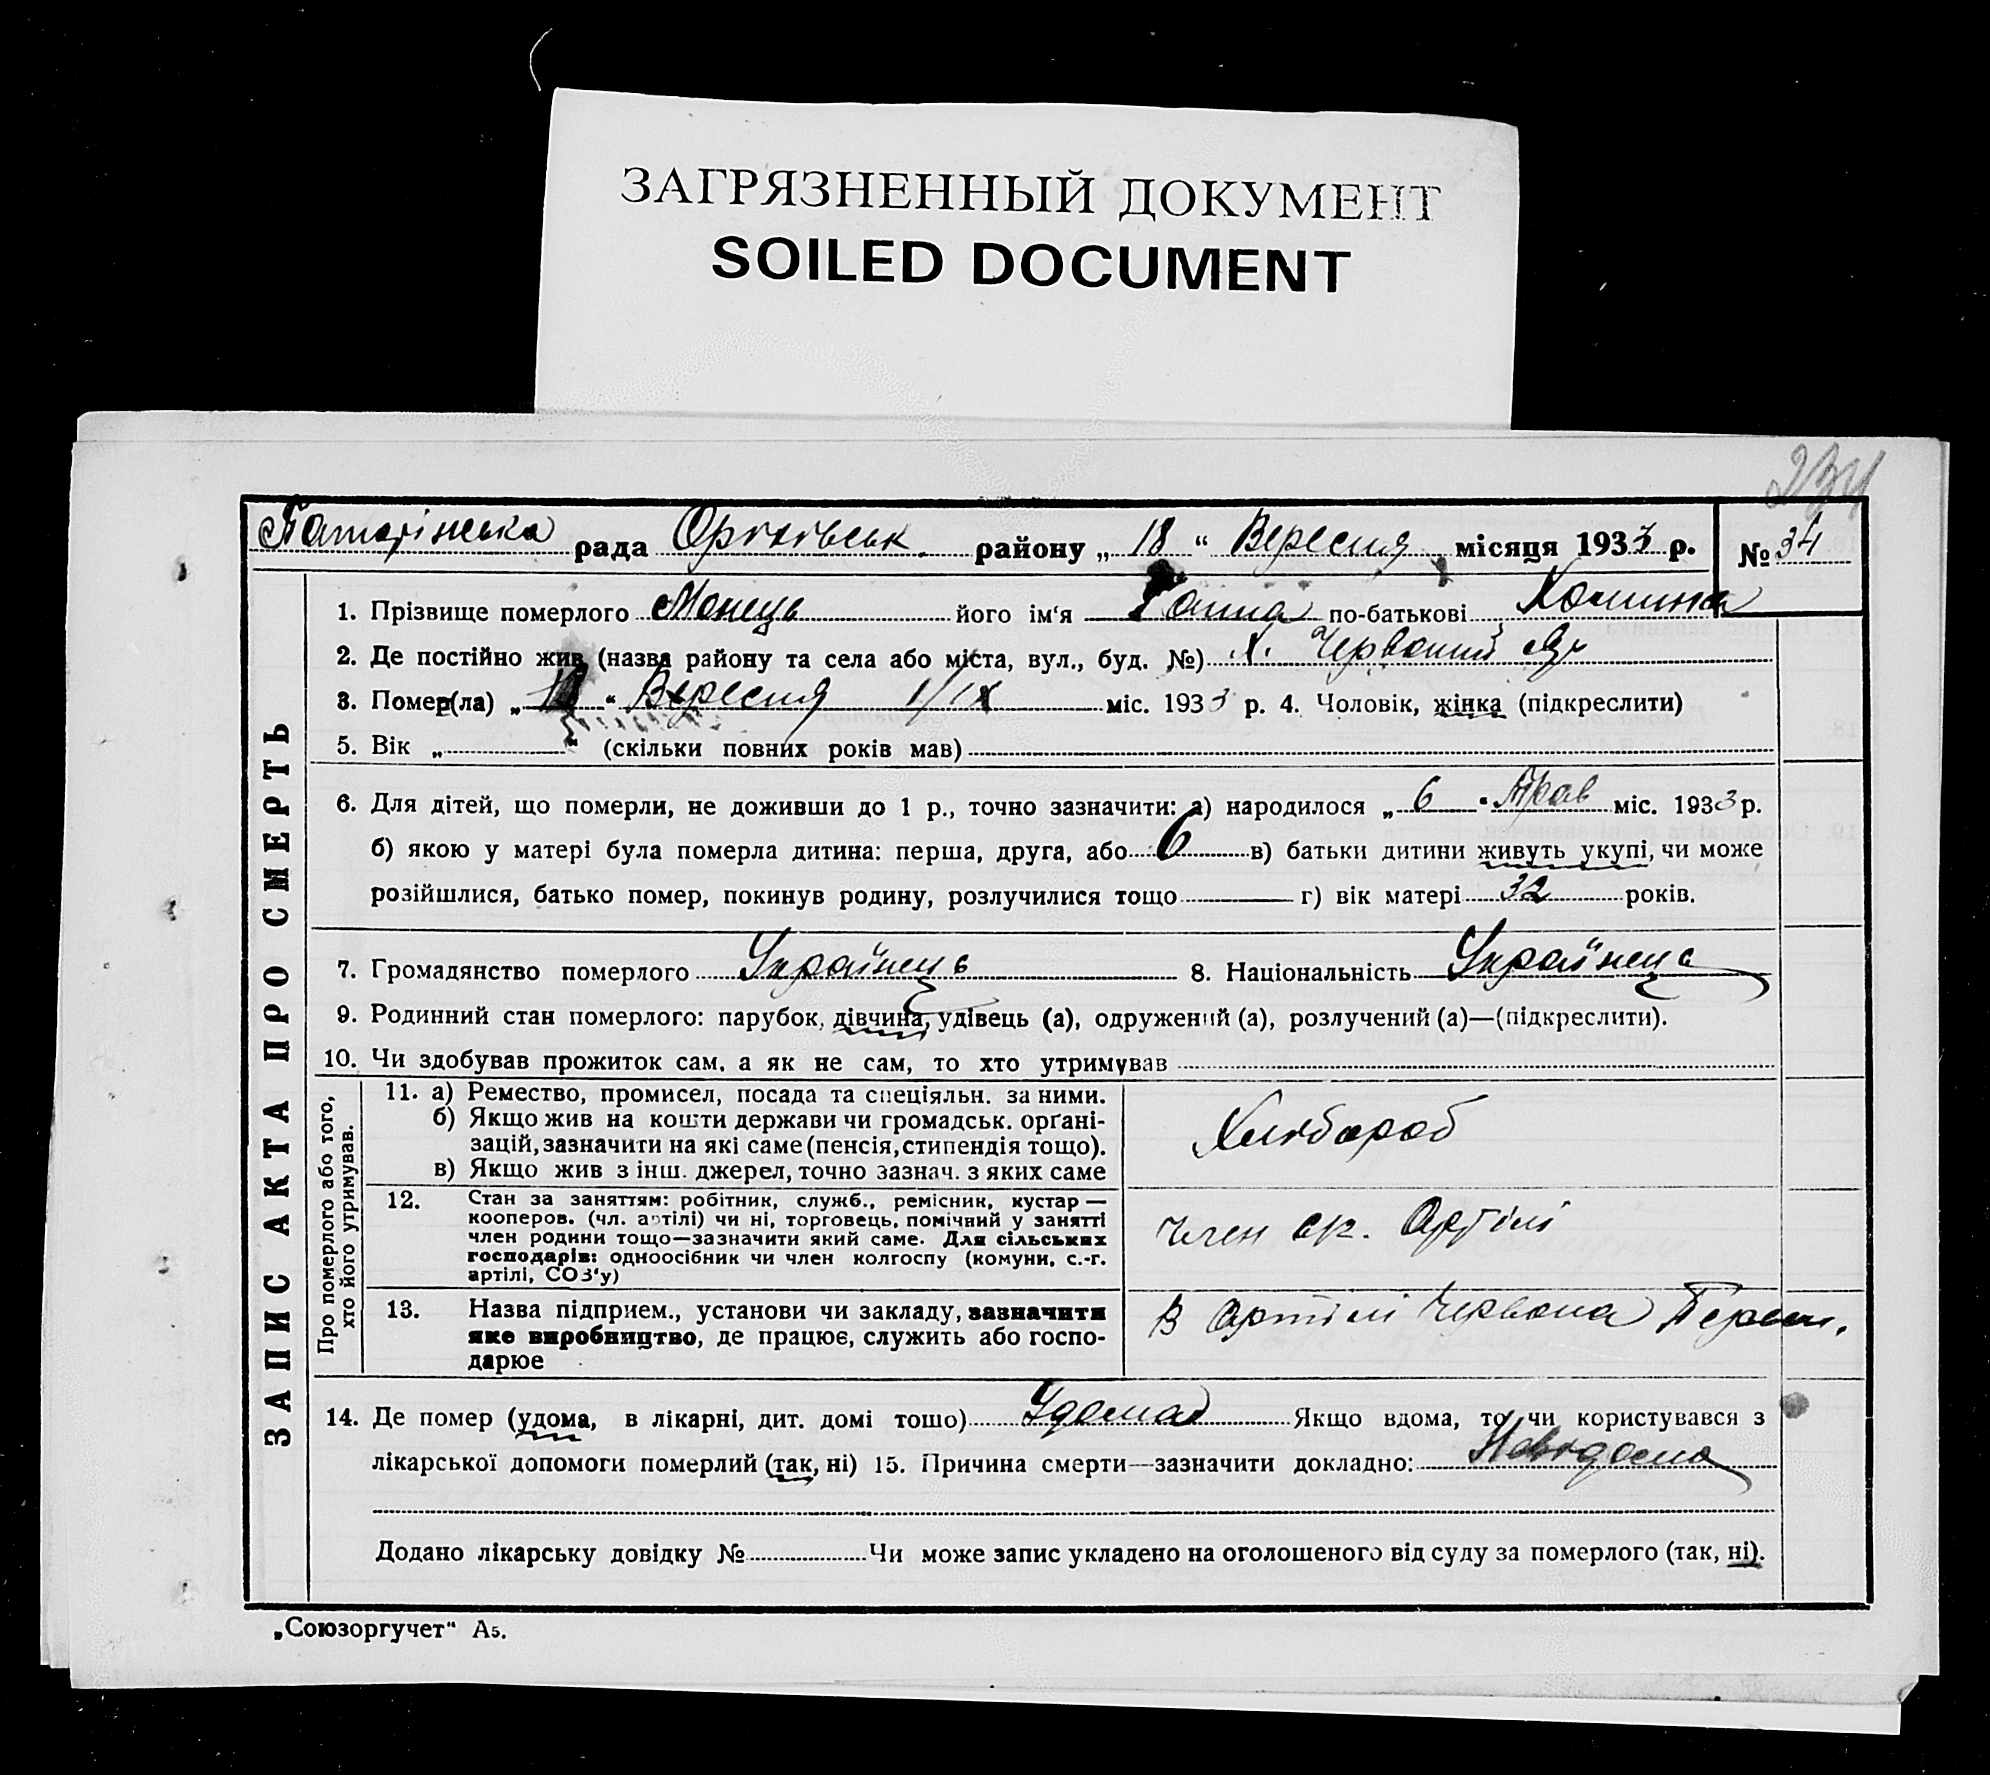 ЗАГРЯЗНЕННЫЙ ДОКУМЕНТ
SOILED DOCUMENT
234
рада Оржівськ. району „ 18 “ Вересня місяця 1933 р. № 34
ЗАПИС АКТА ПРО СМЕРТЬ
1. Прізвище померлого Монець його ім‘я Ганна по-батькові Хомина
2. Де постійно жив (назва району та села або міста, вул., буд. №) х. Червоний
3. Помер(ла) „ “ Вересня 1/IX міс. 1933 р. 4. Чоловік, жінка (підкреслити)
5. Вік „ “ (скільки повних років мав)
6. Для дітей, що померли, не доживши до 1 р., точно зазначити: а) народилося „ 6 “ Трав міс. 1933 р.
б) якою у матері була померла дитина: перша, друга, або 6 в) батьки дитини живуть укупі, чи може
розійшлися, батько помер, покинув родину, розлучилися тощо г) вік матері 32 років.
7. Громадянство померлого Українець 8. Національність Українець
9. Родинний стан померлого: парубок, дівчина, удівець (а), одружений (а), розлучений (а)—(підкреслити).
10. Чи здобував прожиток сам, а як не сам, то хто утримував
Про померлого або того,
хто його утримував.
11. а) Ремество, промисел, посада та спеціяльн. за ними.
б) Якщо жив на кошти держави чи громадськ. орґані-
зацій, зазначити на які саме (пенсія, стипендія тощо).
в) Якщо жив з інш. джерел, точно зазнач. з яких саме
Хлібороб
12. Стан за заняттям: робітник, служб., ремісник, кустар —
кооперов. (чл. артілі) чи ні, торговець, помічний у занятті
член родини тощо—зазначити який саме. Для сільських
господарів: одноосібник чи член колгоспу (комуни, с.-г.
артілі, СОЗ‘у)
Член ск. Артілі
13. Назва підприєм., установи чи закладу, зазначити
яке виробництво, де працює, служить або госпо-
дарює
В Артілі Червона
14. Де помер (удома, в лікарні, дит. домі тощо) Удома Якщо вдома, то чи користувався з
лікарської допомоги померлий (так, ні) 15. Причина смерти—зазначити докладно: Невідома
Додано лікарську довідку № Чи може запис укладено на оголошеного від суду за померлого (так, ні).
„Союзоргучет“ А5.